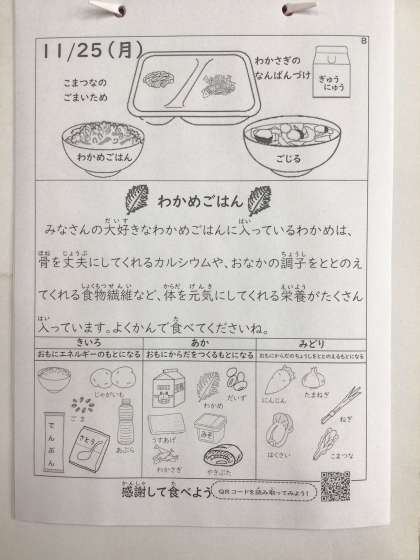 B
11/25(月)
こまつなの
ごまいため
わかさぎの
なんばんづけ
ぎゅう
にゅう
わかめごはん
ごじる
わかめごはん
みなさんの大好きなわかめごはんに入っているわかめは、
骨を丈夫にしてくれるカルシウムや、おなかの調子をととのえ
てくれる食物繊維など、体を元気にしてくれる栄養がたくさん
入っています。よくかんで食べてくださいね。
きいろ
おもにエネルギーのもとになる
あか
おもにからだをつくるもとになる
みどり
おもにからだのちょうしをととのえるもとになる
じゃがいも
ごま
でんぷん
さとう
あぶら
わかめ
だいず
うすあげ
みそ
わかさぎ
やきぶた
にんじん
たまねぎ
ねぎ
はくさい
こまつな
感謝して食べよう
QRコードを読み取ってみよう!